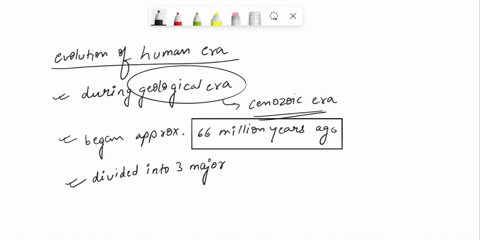 evolution of human era
during geological era
cenozoic era
began approx. 66 million years ago
divided into 3 major